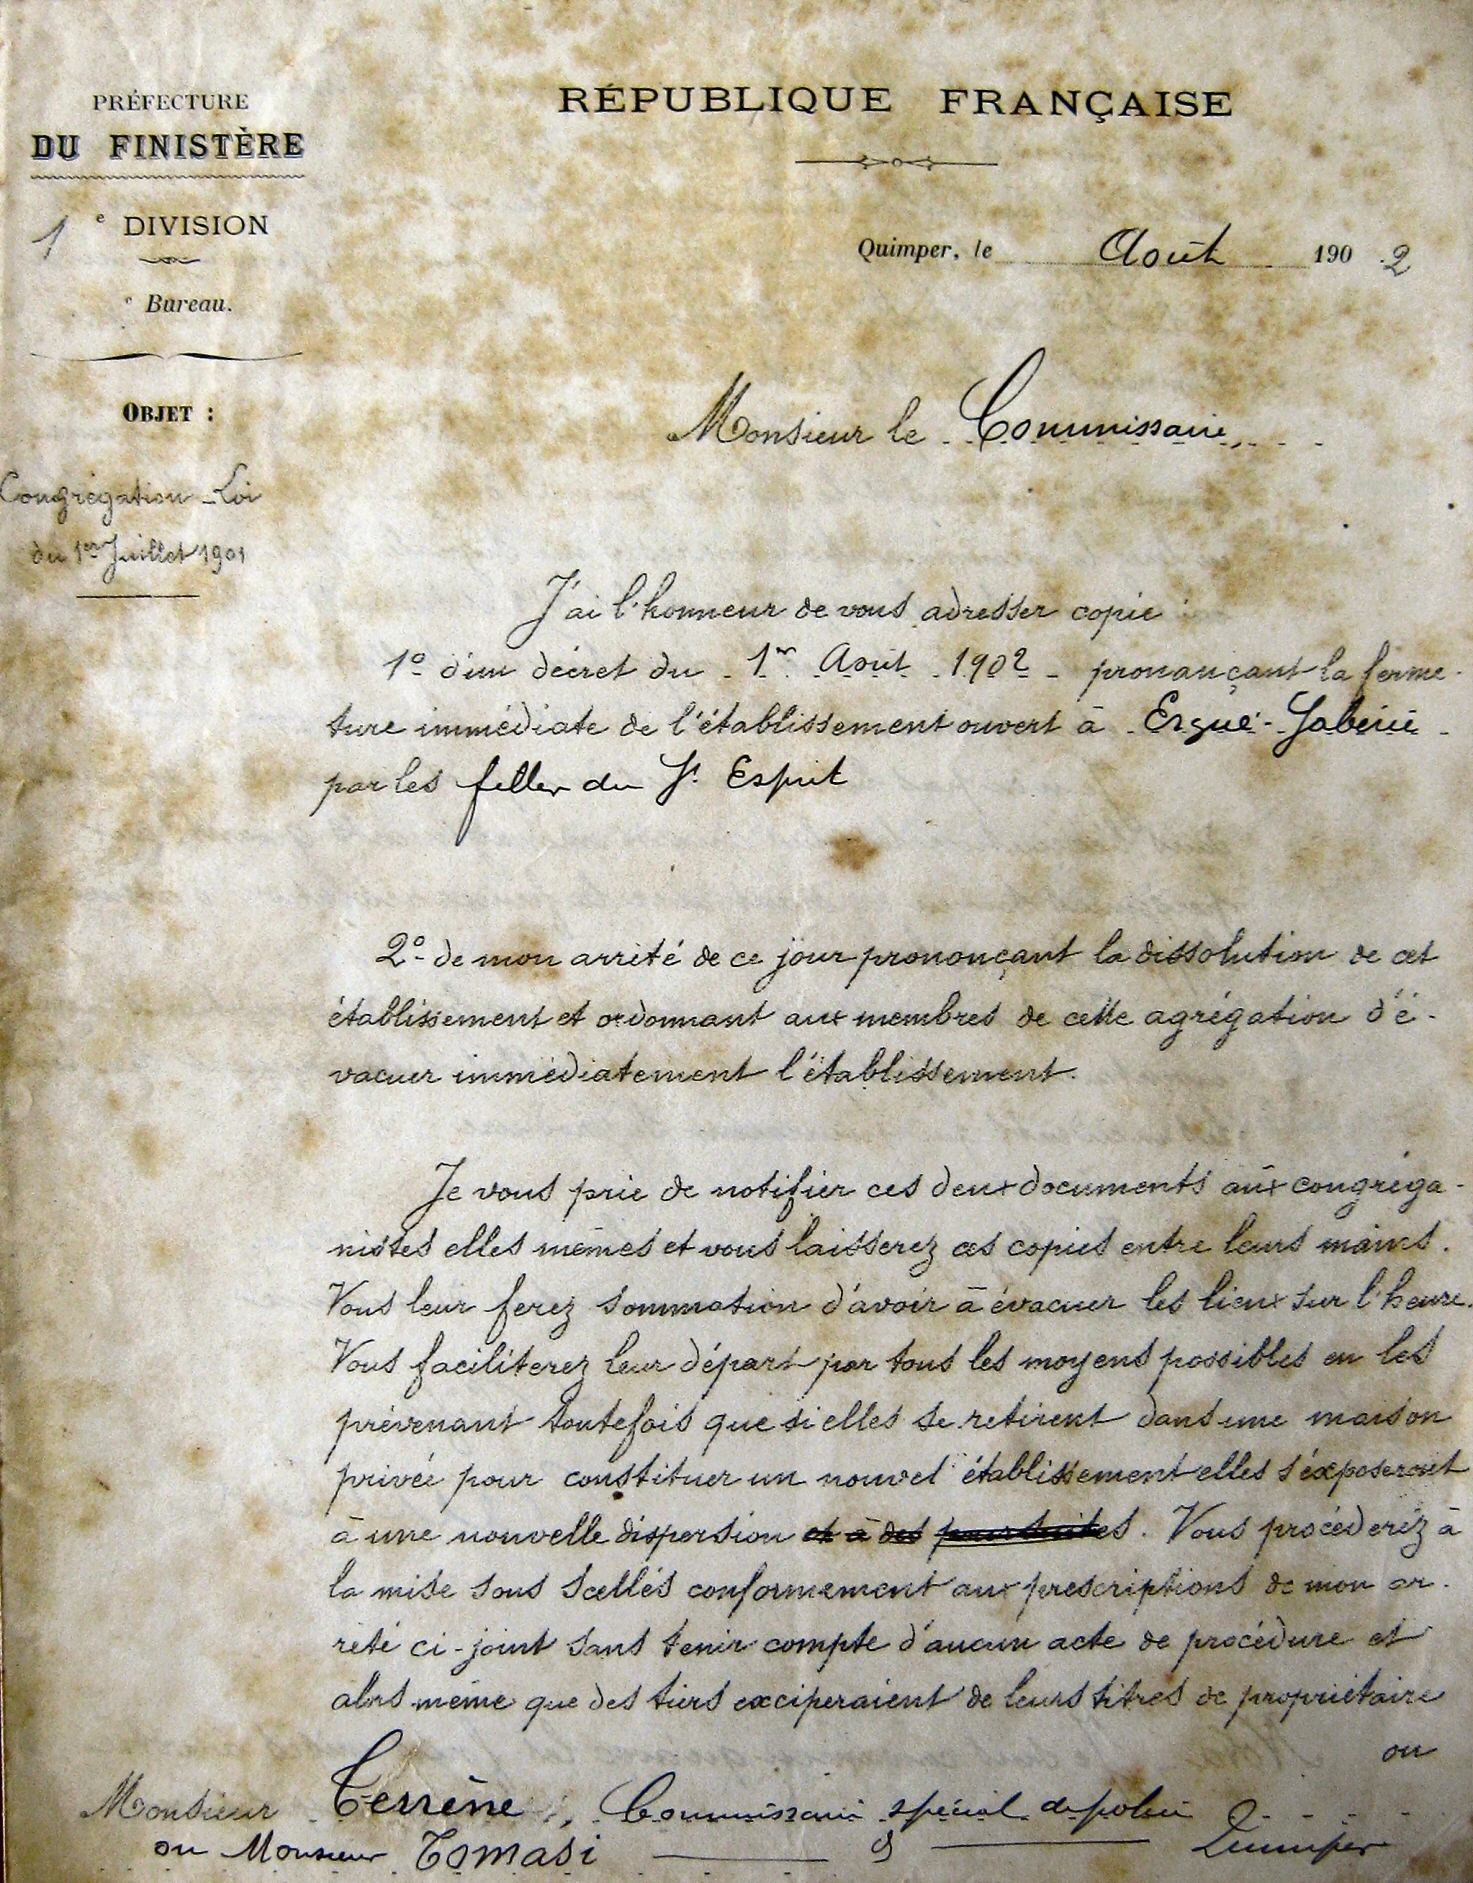 PRÉFECTURE
DU FINISTÈRE
1e DIVISION
e Bureau.
OBJET :
Congrégation - Loi
du 1er Juillet 1901
RÉPUBLIQUE FRANÇAISE
Quimper, le Août 1902
Monsieur le Commissaire,
J'ai l'honneur de vous adresser copie :
1º d'un décret du 1er Août 1902 prononçant la ferme-
ture immédiate de l'établissement ouvert à Ergué-Gabéric
par les filles du St Esprit
2º - de mon arrêté de ce jour prononçant la dissolution de cet
établissement et ordonnant aux membres de cette agrégation d'é-
vacuer immédiatement l'établissement.
Je vous prie de notifier ces deux documents aux congréga-
nistes elles mêmes et vous laisserez ces copies entre leurs mains.
Vous leur ferez sommation d'avoir à évacuer les lieux sur l'heure.
Vous faciliterez leur départ par tous les moyens possibles en les
prévenant toutefois que si elles se retirent dans une maison
privée pour constituer un nouvel établissement elles s'éxposeront
à une nouvelle dispersion et à des poursuites. Vous procéderez à
la mise sous scellés conformement aux prescriptions de mon ar-
rêté ci-joint sans tenir compte d'aucun acte de procédure et
alors même que des tiers exciperaient de leurs titres de propriétaire
ou
Monsieur Terrène, Commissaire spécial de police
ou Monsieur Tomasi Quimper